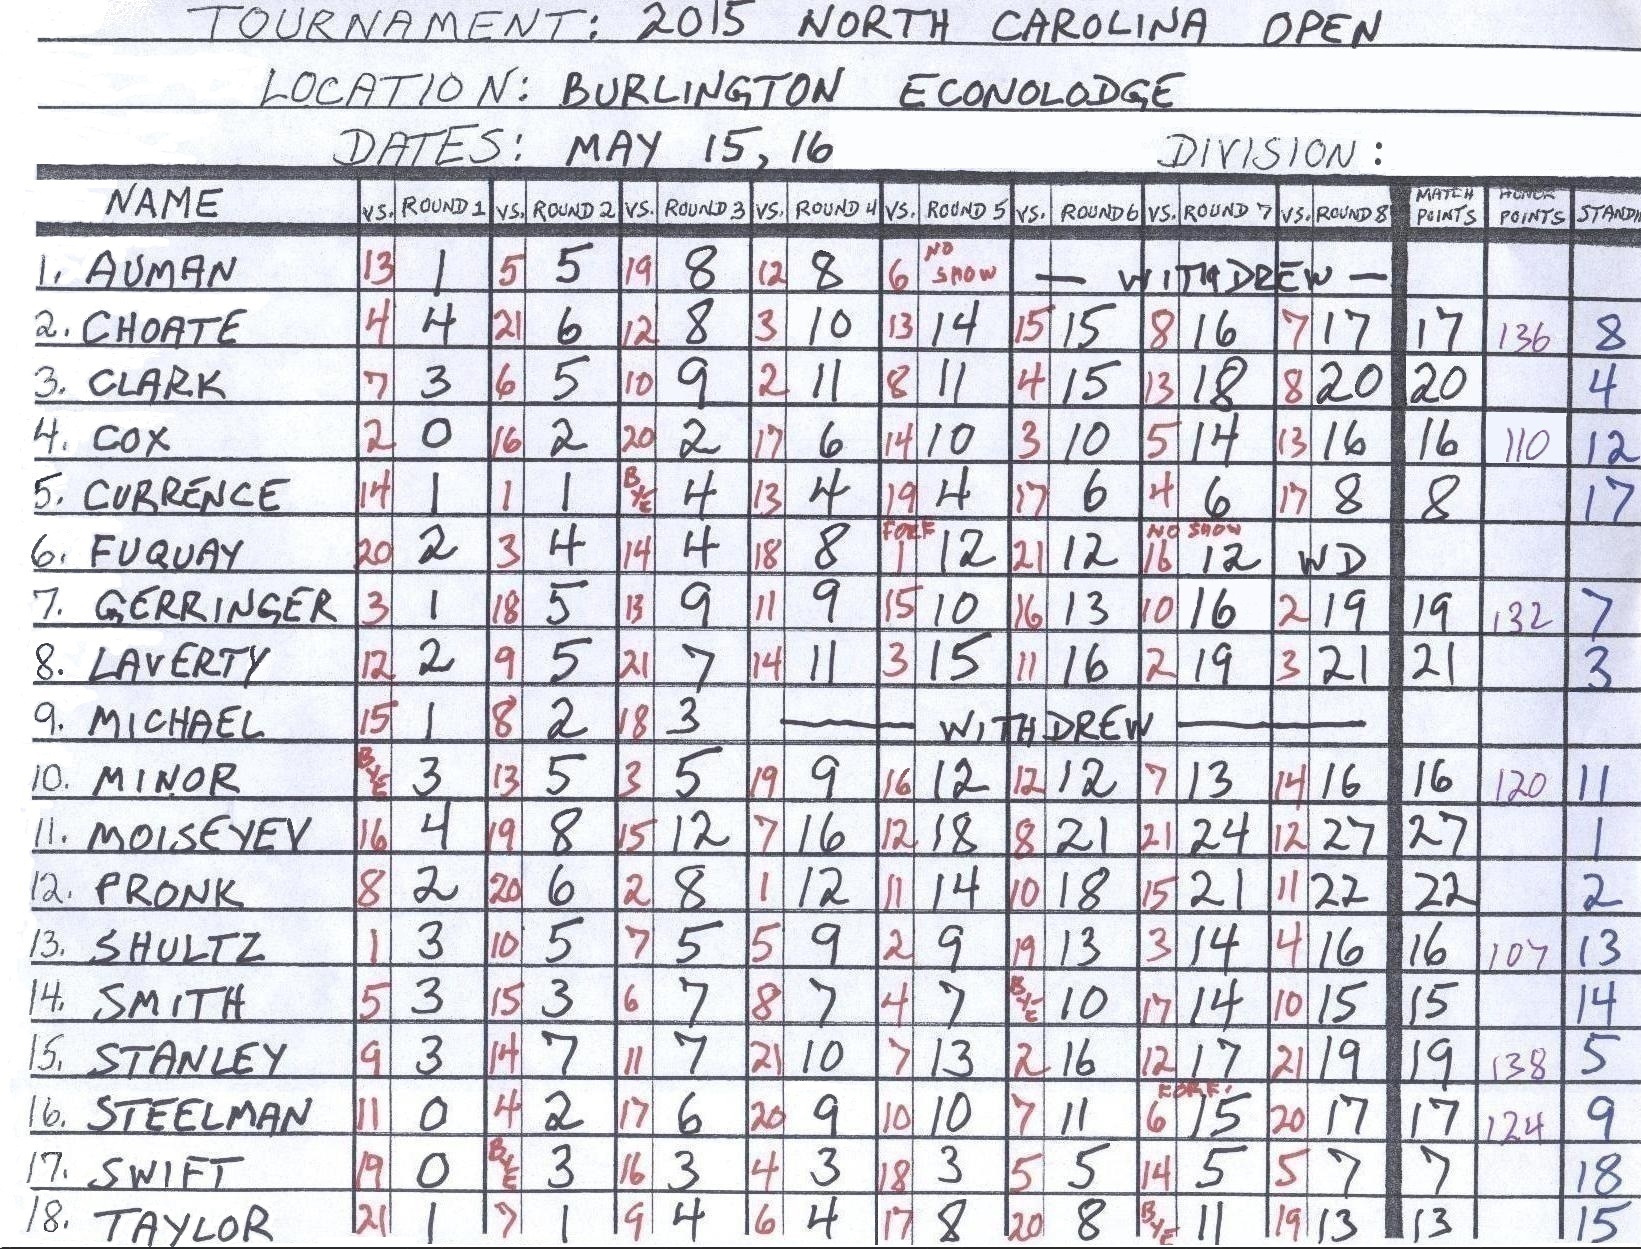 TOURNAMENT: 2015 NORTH CAROLINA OPEN
LOCATION: BURLINGTON ECONOLODGE
DATES: MAY 15, 16 DIVISION:
NAME VS. ROUND 1 VS. ROUND 2 VS. ROUND 3 VS. ROUND 4 VS. ROUND 5 VS. ROUND 6 VS. ROUND 7 VS. ROUND 8 MATCH POINTS HONOR POINTS STANDI
1. AUMAN 13 1 5 5 19 8 12 8 6 NO SHOW — WITHDREW —
2. CHOATE 4 4 21 6 12 8 3 10 13 14 15 15 8 16 7 17 17 136 8
3. CLARK 7 3 6 5 10 9 2 11 8 11 4 15 13 18 8 20 20 4
4. COX 2 0 16 2 20 2 17 6 14 10 3 10 5 14 13 16 16 110 12
5. CURRENCE 14 1 1 1 BYE 4 13 4 19 4 17 6 4 6 17 8 8 17
6. FUQUAY 20 2 3 4 14 4 18 8 FORF 1 12 21 12 NO SHOW 16 12 WD
7. GERRINGER 3 1 18 5 13 9 11 9 15 10 16 13 10 16 2 19 19 132 7
8. LAVERTY 12 2 9 5 21 7 14 11 3 15 11 16 2 19 3 21 21 3
9. MICHAEL 15 1 8 2 18 3 — WITHDREW —
10. MINOR BYE 3 13 5 3 5 19 9 16 12 12 12 7 13 14 16 16 120 11
11. MOISEYEV 16 4 19 8 15 12 7 16 12 18 8 21 21 24 12 27 27 1
12. PRONK 8 2 20 6 2 8 1 12 11 14 10 18 15 21 11 22 22 2
13. SHULTZ 1 3 10 5 7 5 5 9 2 9 19 13 3 14 4 16 16 107 13
14. SMITH 5 3 15 3 6 7 8 7 4 7 BYE 10 17 14 10 15 15 14
15. STANLEY 9 3 14 7 11 7 21 10 7 13 2 16 12 17 21 19 19 138 5
16. STEELMAN 11 0 4 2 17 6 20 9 10 10 7 11 FORF. 6 15 20 17 17 124 9
17. SWIFT 19 0 BYE 3 16 3 4 3 18 3 5 5 14 5 5 7 7 18
18. TAYLOR 21 1 7 1 9 4 6 4 17 8 20 8 BYE 11 19 13 13 15